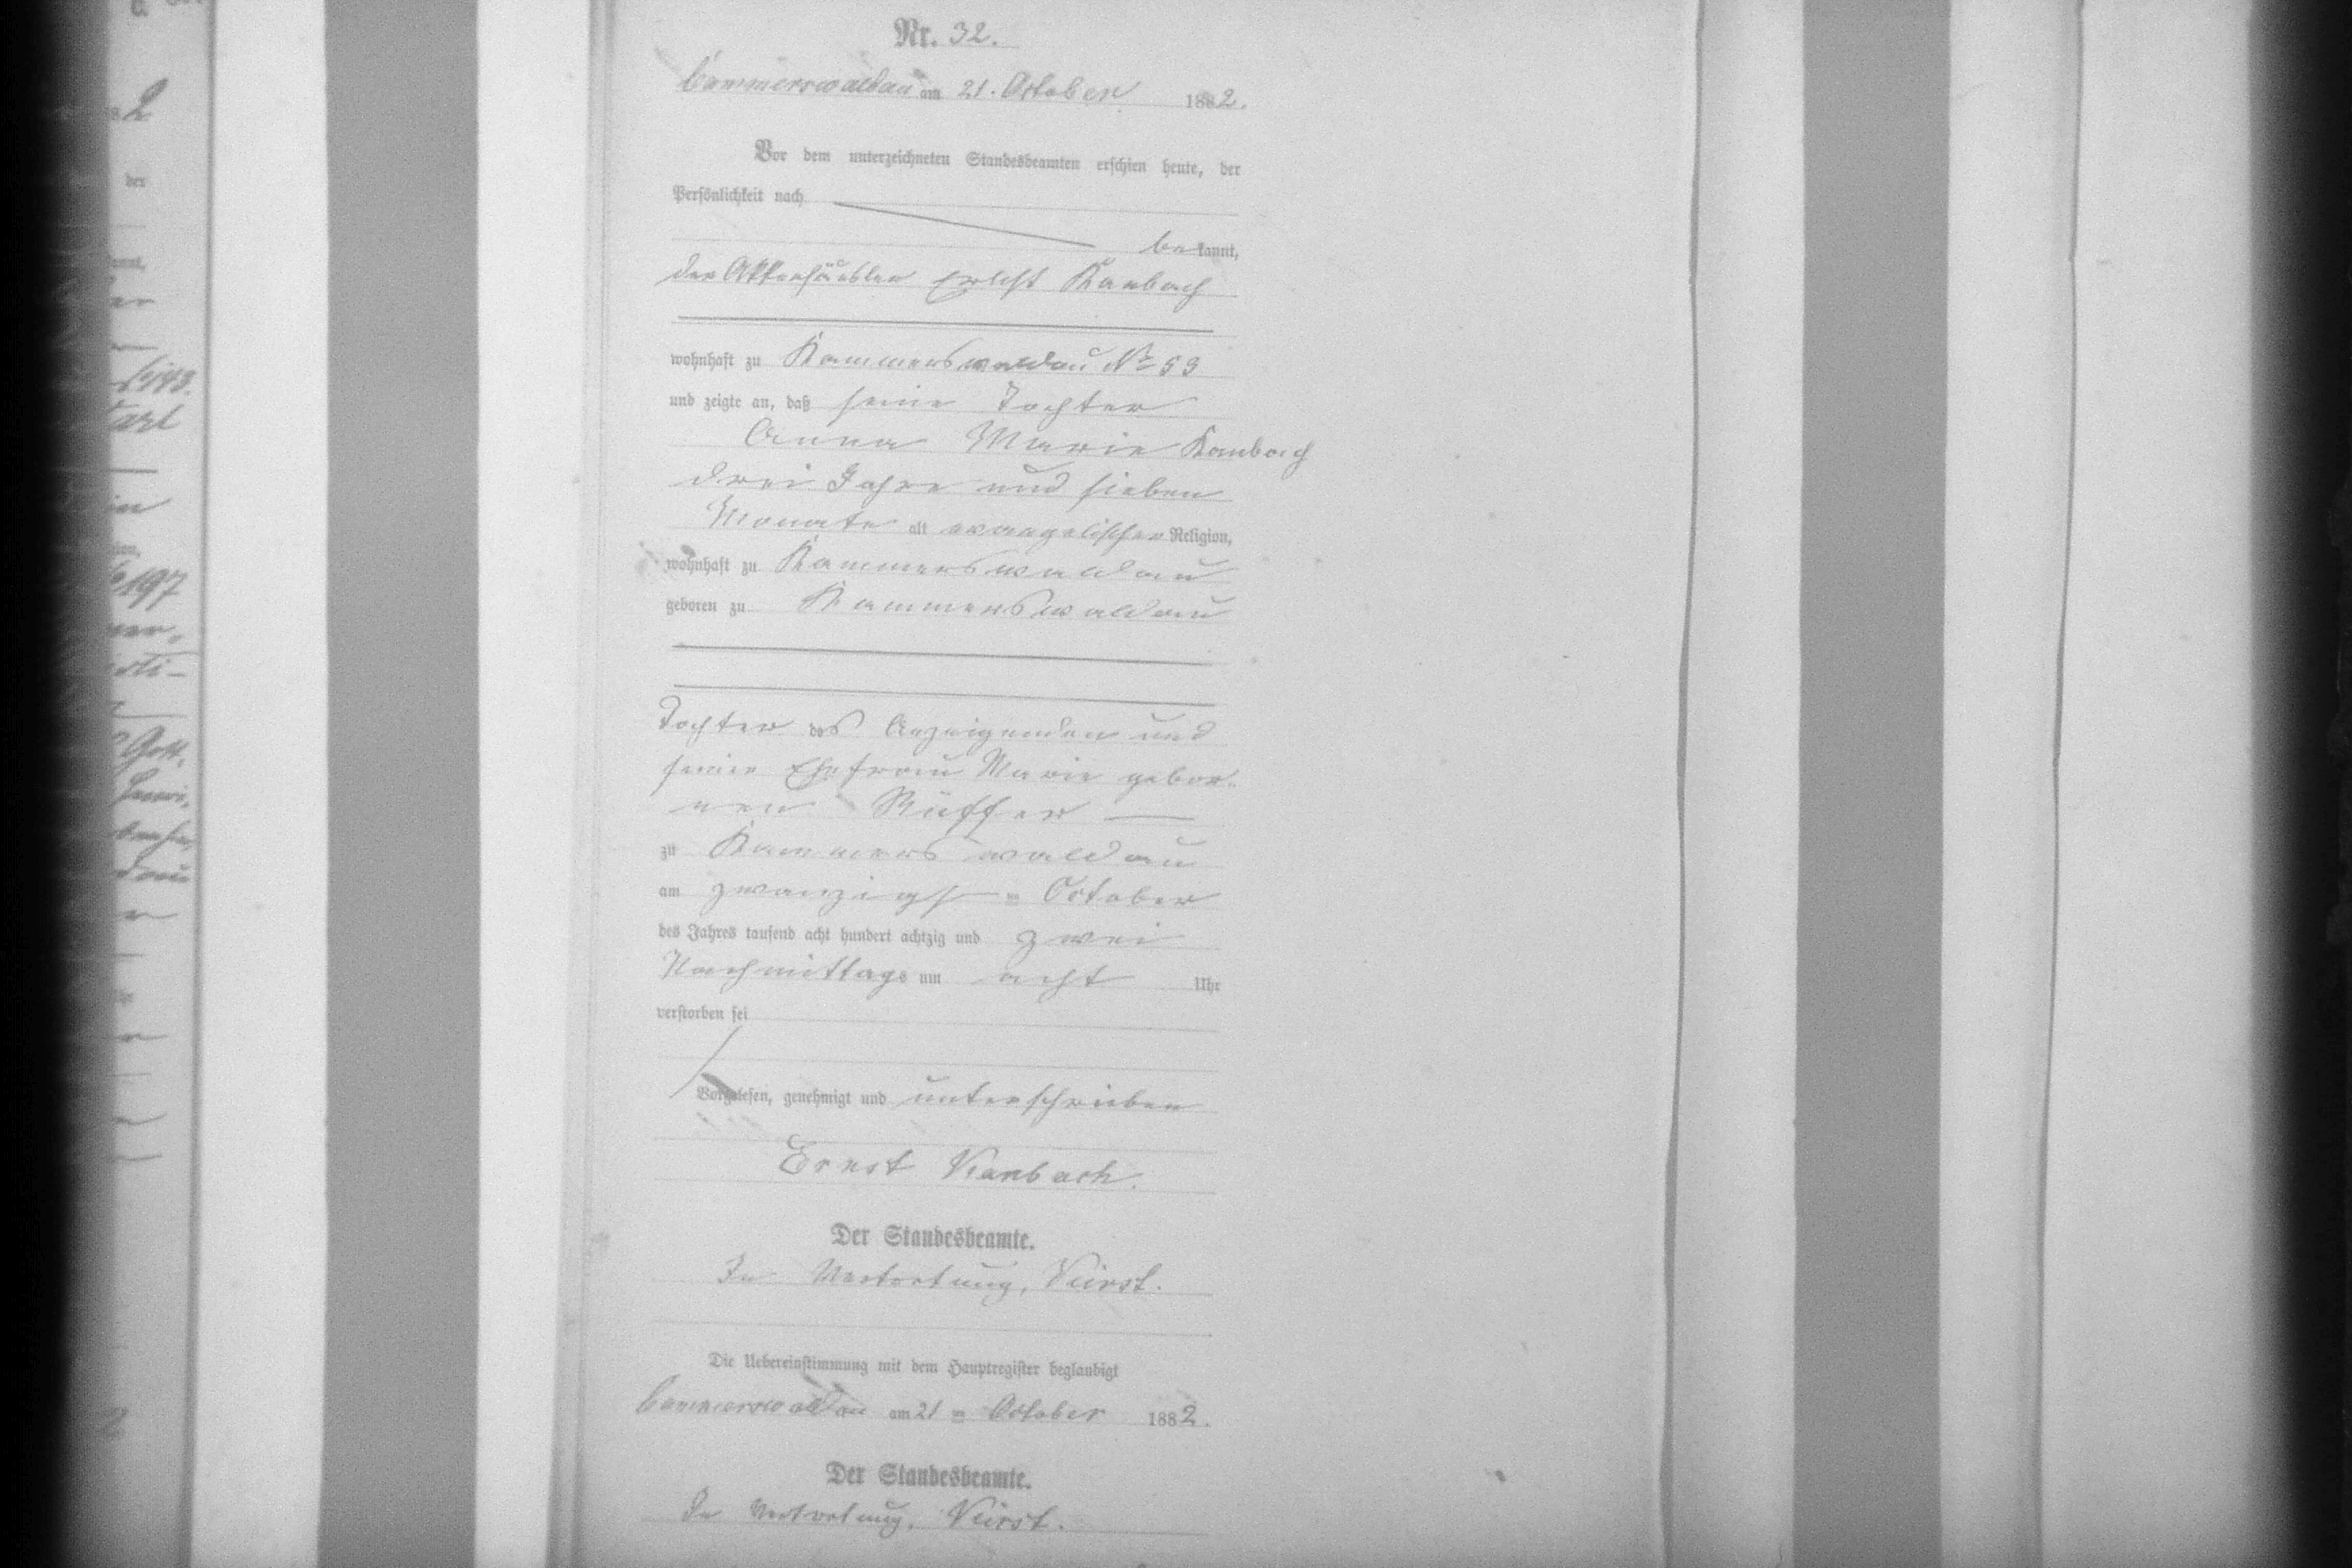 Nr. 32.
Cammerswaldau am 21. October 1882.
Vor dem unterzeichneten Standesbeamten erschien heute, der
Persönlichkeit nach
bekannt,
der Ernst Kambach
wohnhaft zu Kammerswaldau No 53
und zeigte an, daß seine Tochter
Anna Marie Kambach
drei Jahre und sieben
Monate alt evangelischer Religion,
wohnhaft zu Kammerswaldau
geboren zu Kammerswaldau
Tochter des Anzeigenden und
seiner Ehefrau Marie gebor-
nen Rüffer
zu Kammerswaldau
am zwanzigst en October
des Jahres tausend acht hundert achtzig und zwei
Nachmittags um acht Uhr
verstorben sei
Vorgelesen, genehmigt und unterschrieben
Ernst Kambach.
Der Standesbeamte.
In Vertretung,
Die Uebereinstimmung mit dem Hauptregister beglaubigt
Cammerswaldau am 21 ten October 1882.
Der Standesbeamte.
In Vertretung,